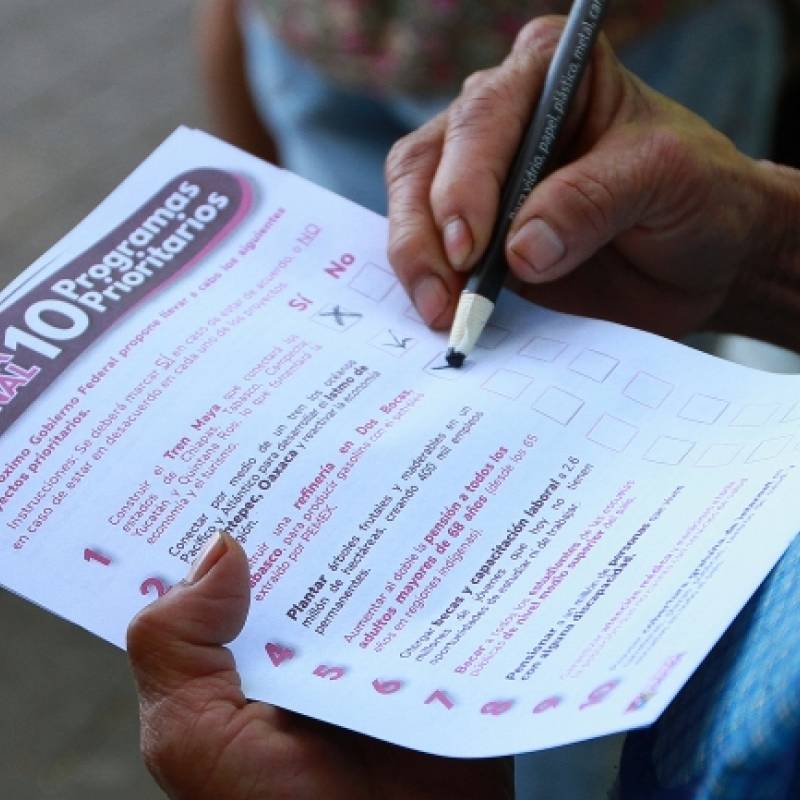 10 Programas
Prioritarios
róximo Gobierno Federal propone llevar a cabo los siguientes
yectos prioritarios.
Instrucciones: Se deberá marcar SÍ en caso de estar de acuerdo, o NO
en caso de estar en desacuerdo en cada uno de los proyectos
Sí No
1 Construir el Tren Maya que conectará los
estados de Chiapas, Tabasco, Campeche
Yucatán y Quintana Roo, lo que fomentará la
economía y el turismo.
2 Conectar por medio de un tren los océanos
Pacífico y Atlántico para desarrollar el Istmo de
ntepec, Oaxaca y reactivar la economía
gión.
truir una refinería en Dos Bocas,
abasco, para producir gasolina con el petróleo
extraído por PEMEX.
4 Plantar árboles frutales y maderables en un
millón de hectáreas, creando 400 mil empleos
permanentes.
5 Aumentar al doble la pensión a todos los
adultos mayores de 68 años (desde los 65
años en regiones indígenas).
6 Otorgar becas y capacitación laboral a 2.6
millones de jóvenes que hoy no tienen
oportunidades de estudiar ni de trabajar.
7 Becar a todos los estudiantes de las escuelas
públicas de nivel medio superior del país.
8 Pensionar a un millón de personas que viven
con alguna discapacidad.
9
10
para vidrio, papel, plástico, metal, car